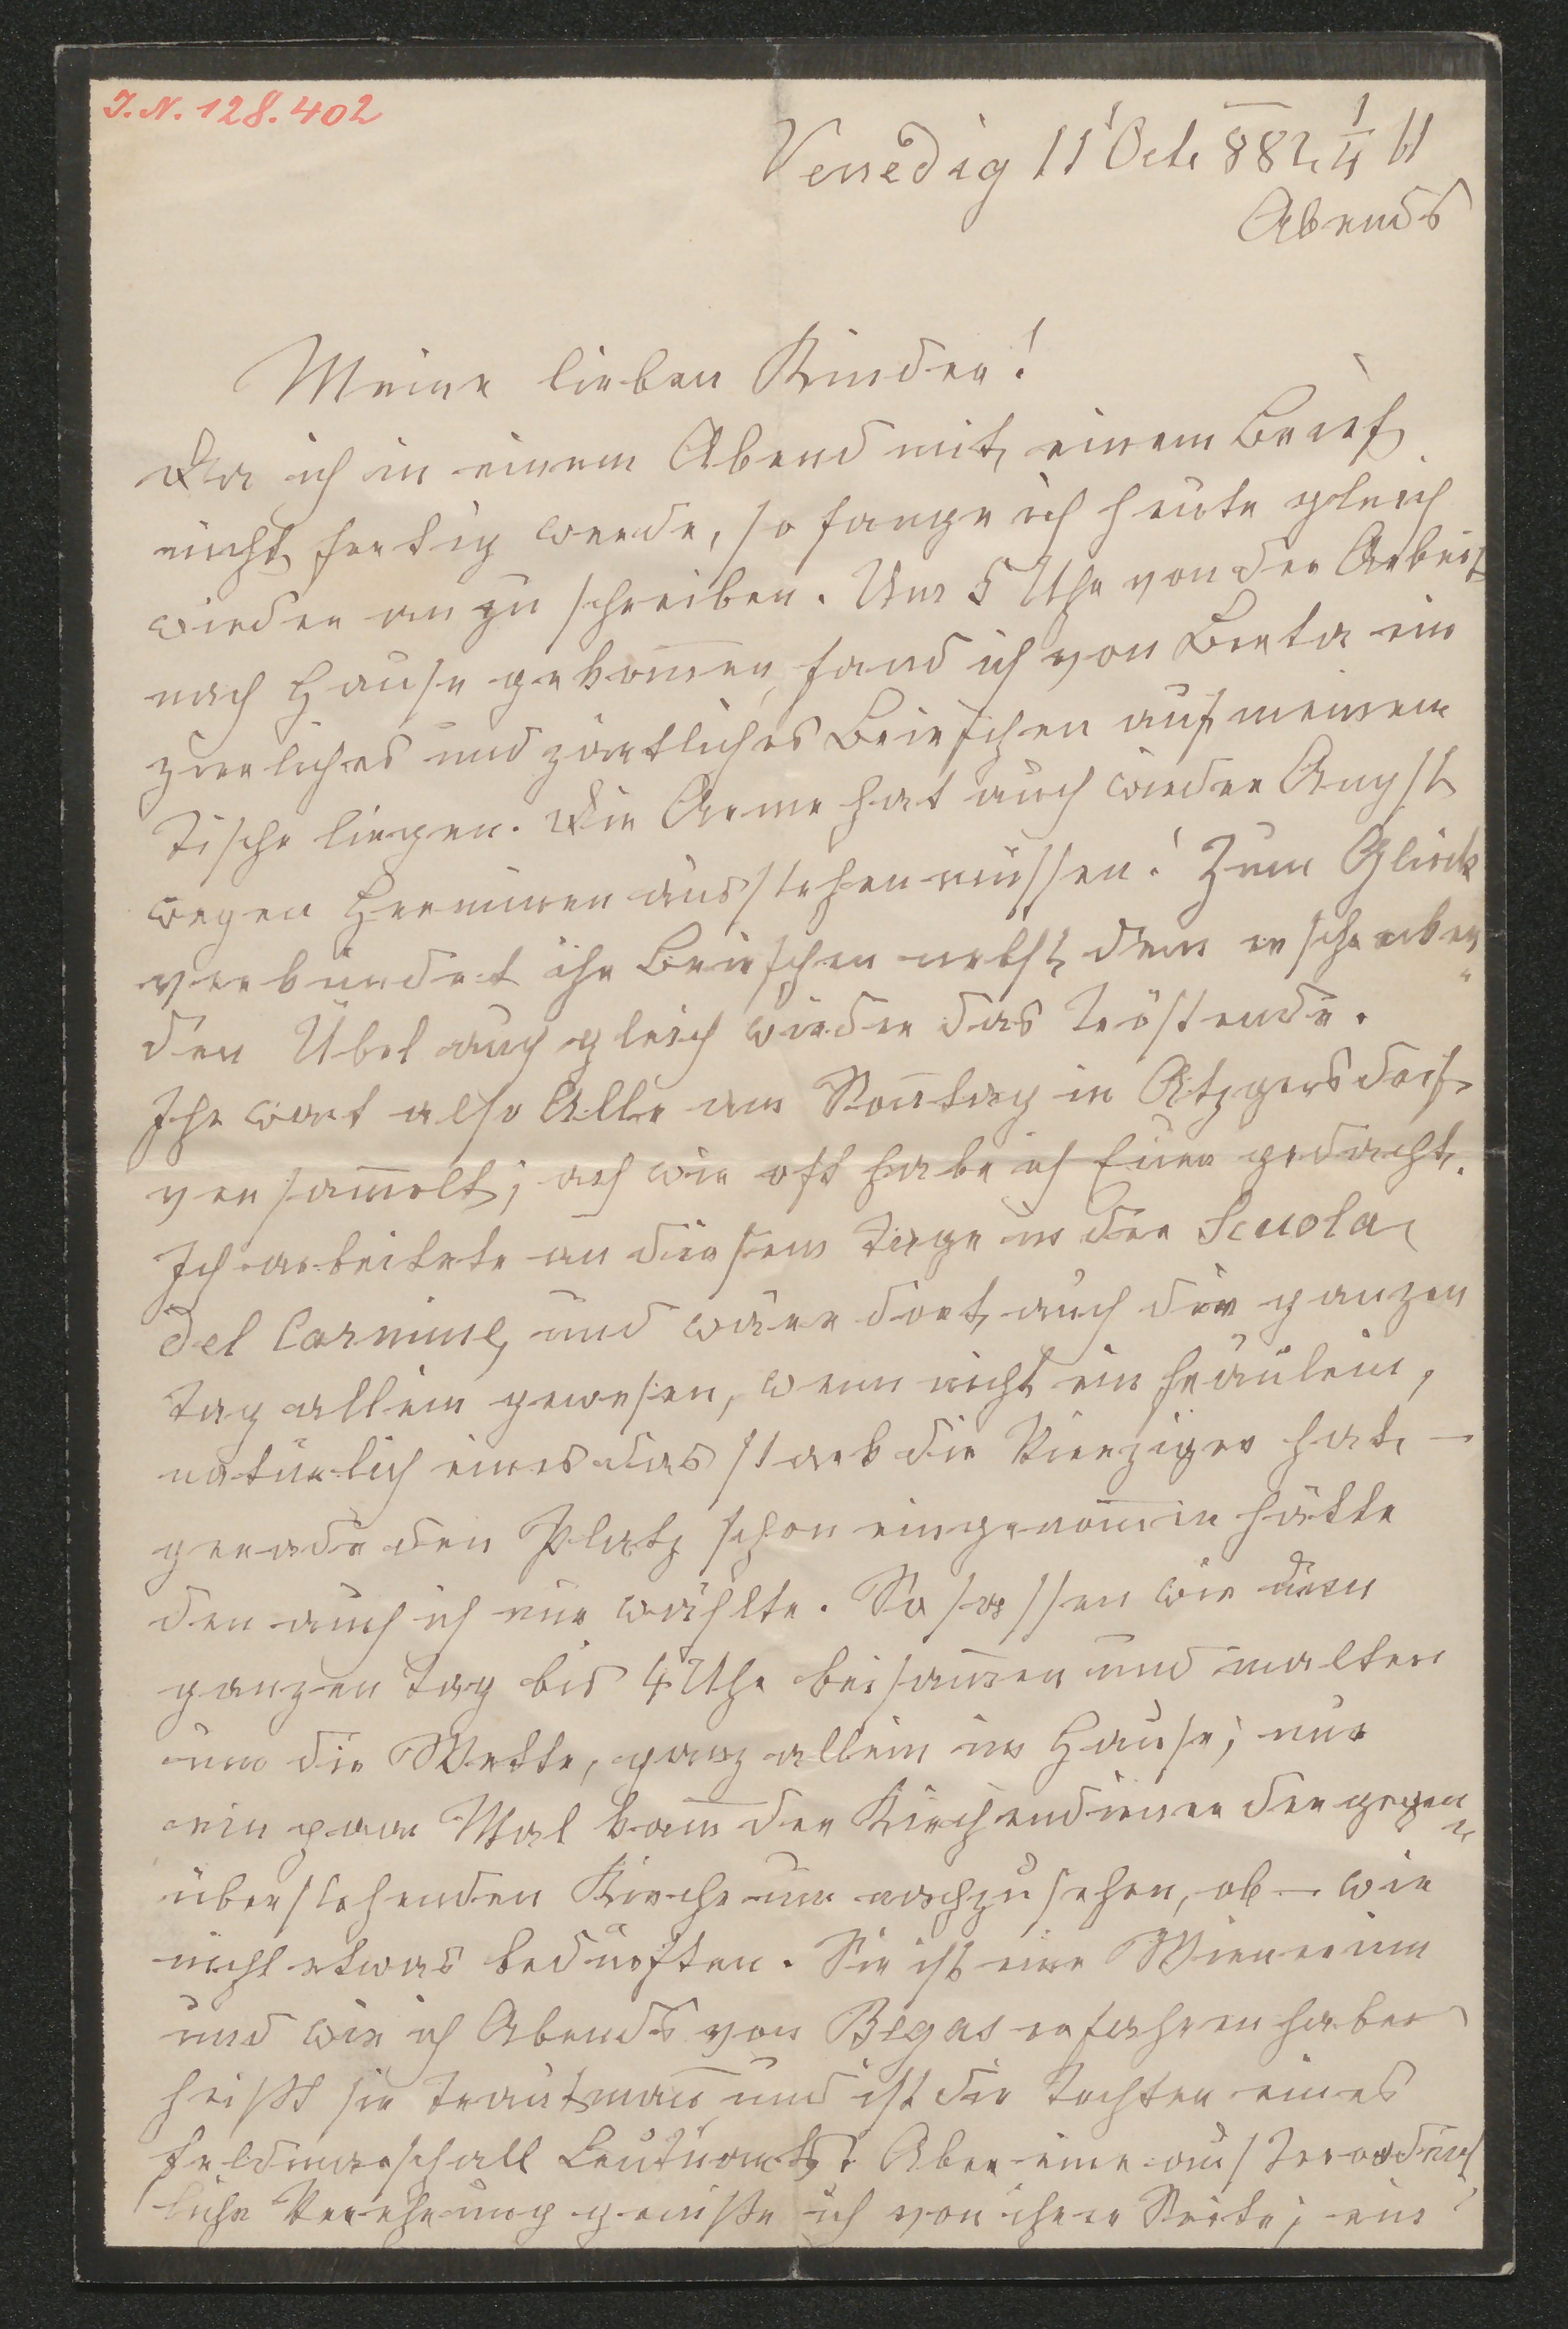 I. N. 128.402
Venedig 11 Oct. 882 ¼ 11
Abends
Meine lieben Kinder!
Da ich in einem Abend mit einem Brief
nicht fertig werde, so fange ich heute gleich
wieder an zu schreiben. Um 5 Uhr von der Arbeit
nach Hause gekom̅en, fand ich von Berta ein
zierliches und zärtliches Briefchen auf meinem
Tische liegen. Die Arme hat auch wieder Angst
wegen Herminen ausstehen müssen! Zum Glück
verbindet ihr Briefchen nebst dem
den Übel auch gleich wieder das Tröstende.
Ihr wart also Alle am Son̅tag in Atzgersdorf
versam̅elt; ach wie oft habe ich Euer gedacht.
Ich arbeitete an diesem Tage in der Scuola
del Carmine, und wäre dort auch den ganzen
Tag allein gewesen, wenn nicht ein Fräulein,
natürlich eines das stark die Vierziger hat, —
gerade den Platz schon eingenom̅en hätte
den auch ich mir wählte. So sassen wir den
ganzen Tag bis 4 Uhr beisam̅en und malten
um die Wette, ganz allein im Hause; nur
ein paar Mal kam̅ der Kirchendiener der gegen„
überstehenden Kirche um nachzusehen, ob — wir
nicht etwas bedürften. Sie ist eine Wienerinn
und wie ich Abends von Begas erfahren habe
heißt sie Trautman̅ und ist die Tochter eines
Feldmarschall Leutnants. Aber eine ausserordent
liche Verehrung genieße ich von ihrer Seite; ein